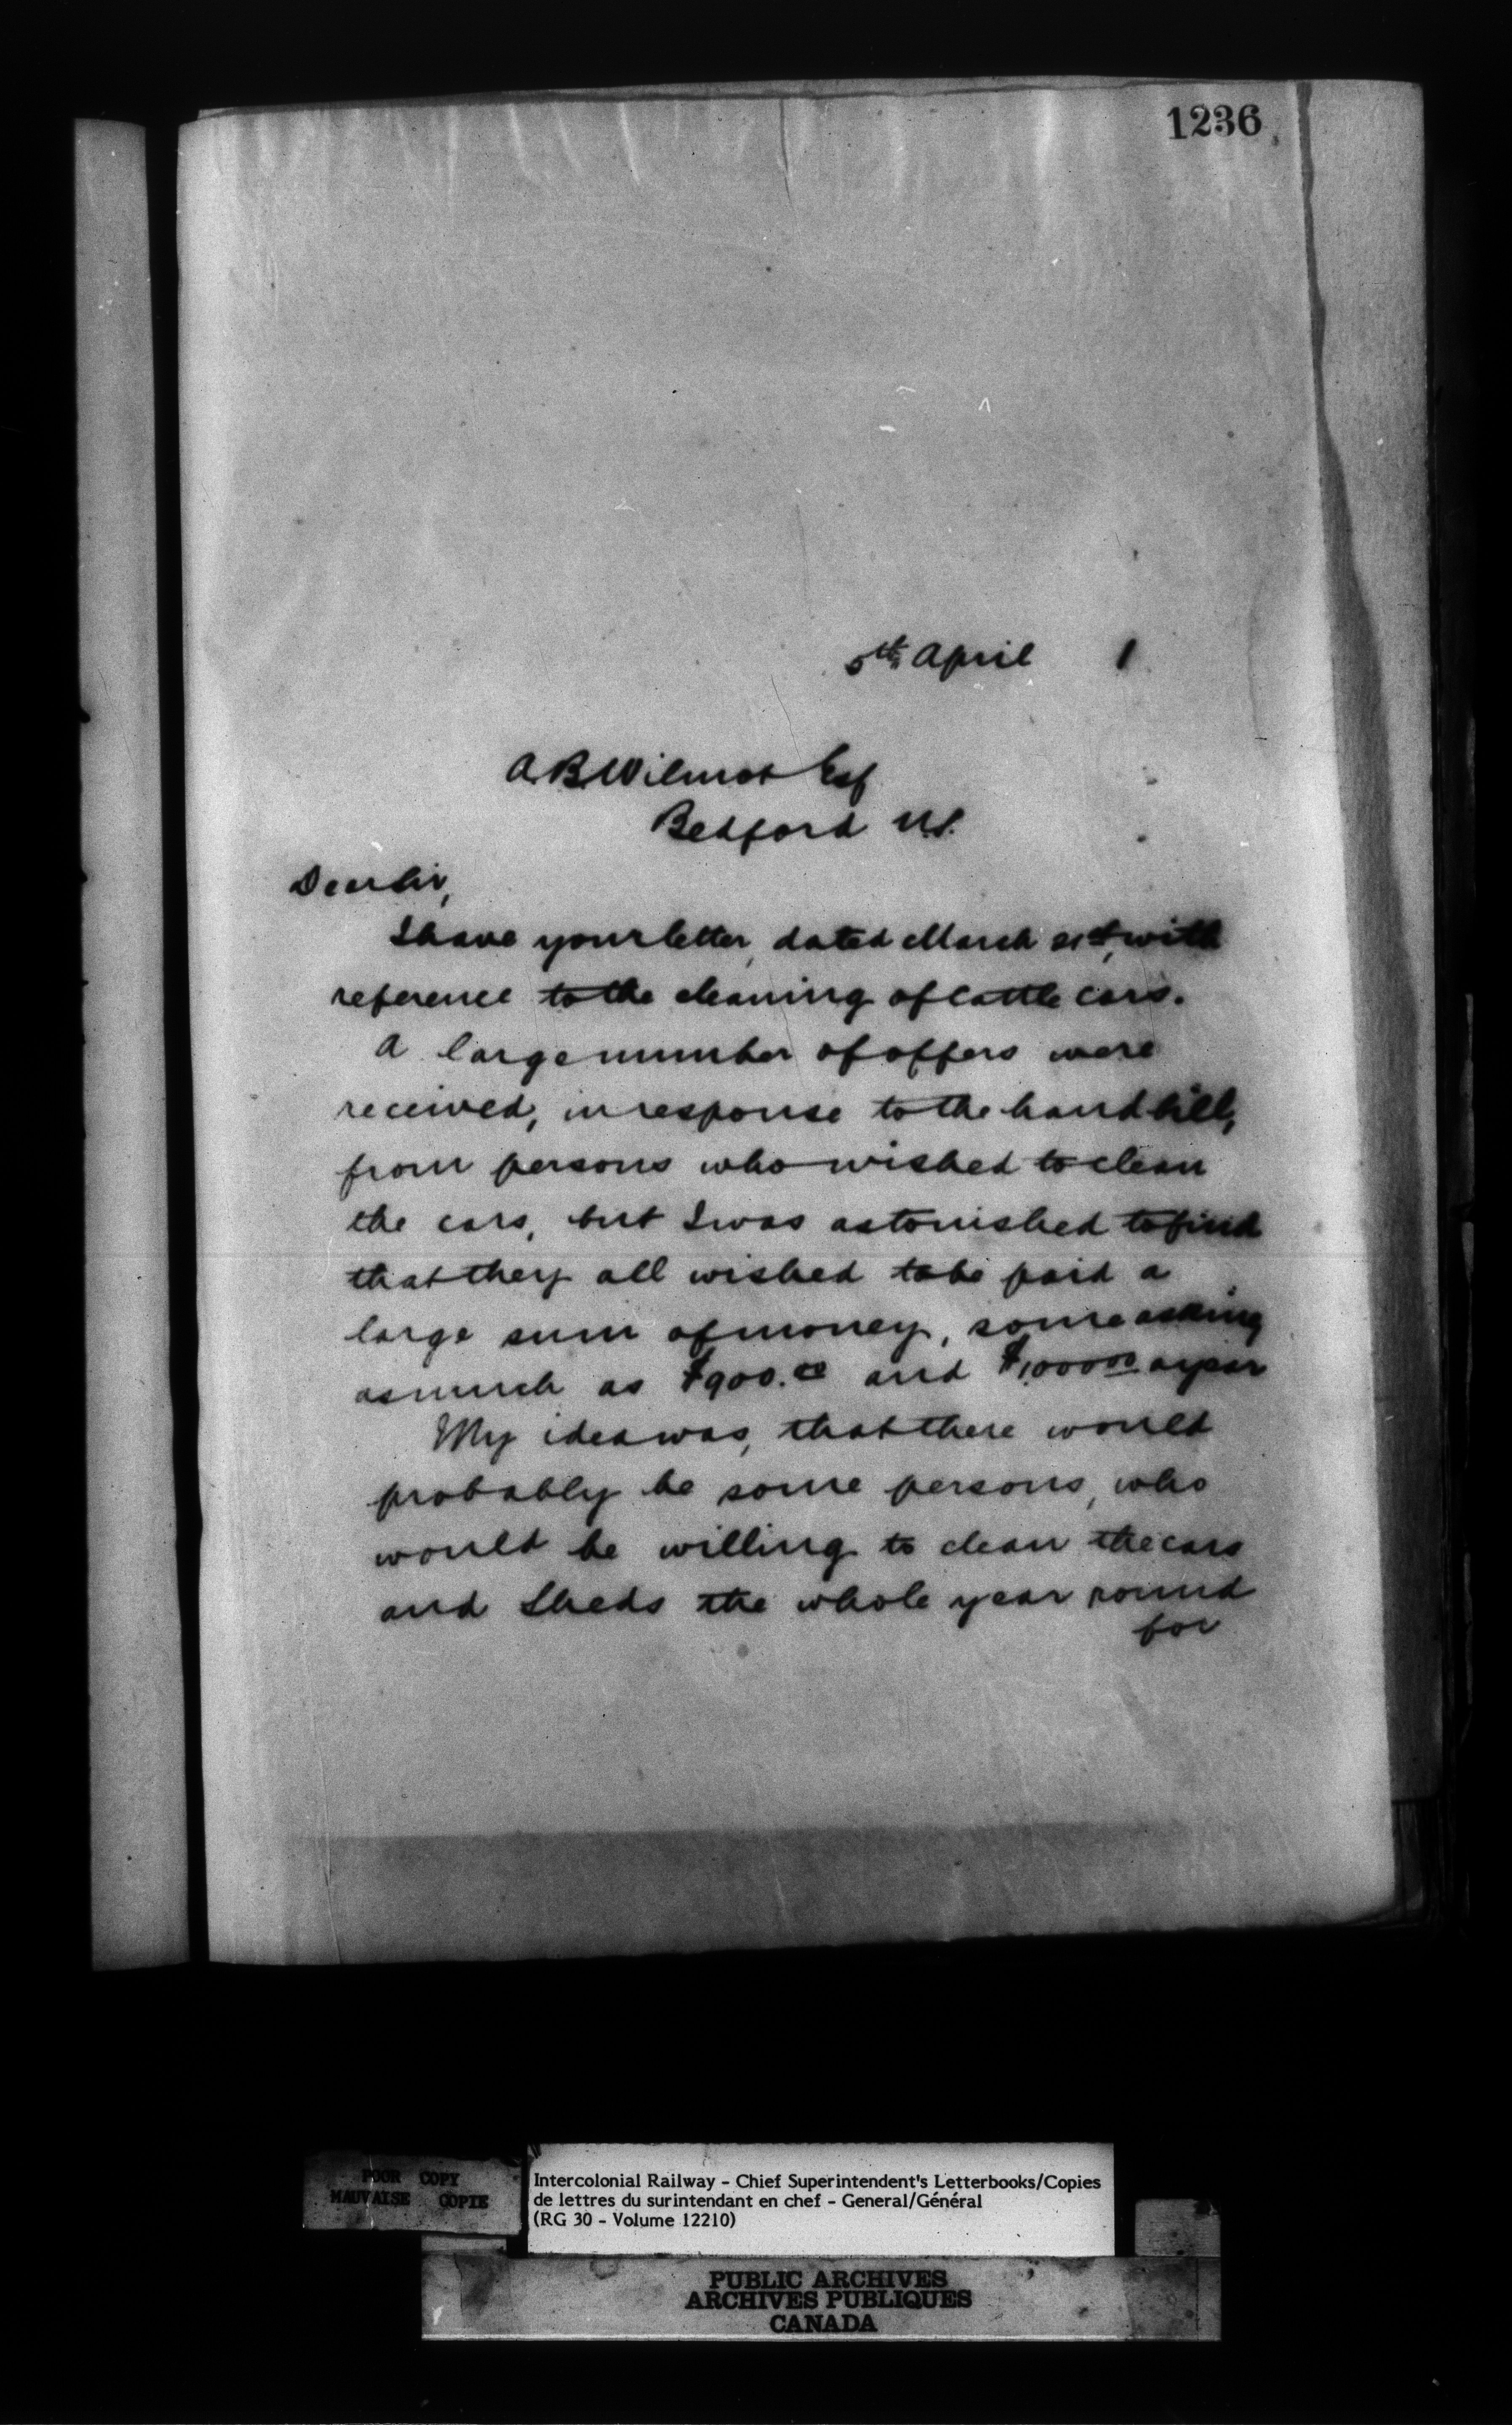 1236
5th April 1
A. B. Wilmot Esq
Bedford N.S.
Dear Sir,
I have your letter, dated March 21st, with
reference to the cleaning of cattle cars.
A large number of offers were
received, in response to the hand bill,
from persons who wished to clean
the cars, but I was astonished to find
that they all wished to be paid a
large sum of money, some asking
as much as $900.00 and $1,000 00 a year
My idea was, that there would
probably be some persons, who
would be willing to clean the cars
and Sheds the whole year round
for
POOR COPY
MAUVAISE COPIE
Intercolonial Railway - Chief Superintendent's Letterbooks/Copies
de lettres du surintendant en chef - General/Général
(RG 30 - Volume 12210)
PUBLIC ARCHIVES
ARCHIVES PUBLIQUES
CANADA